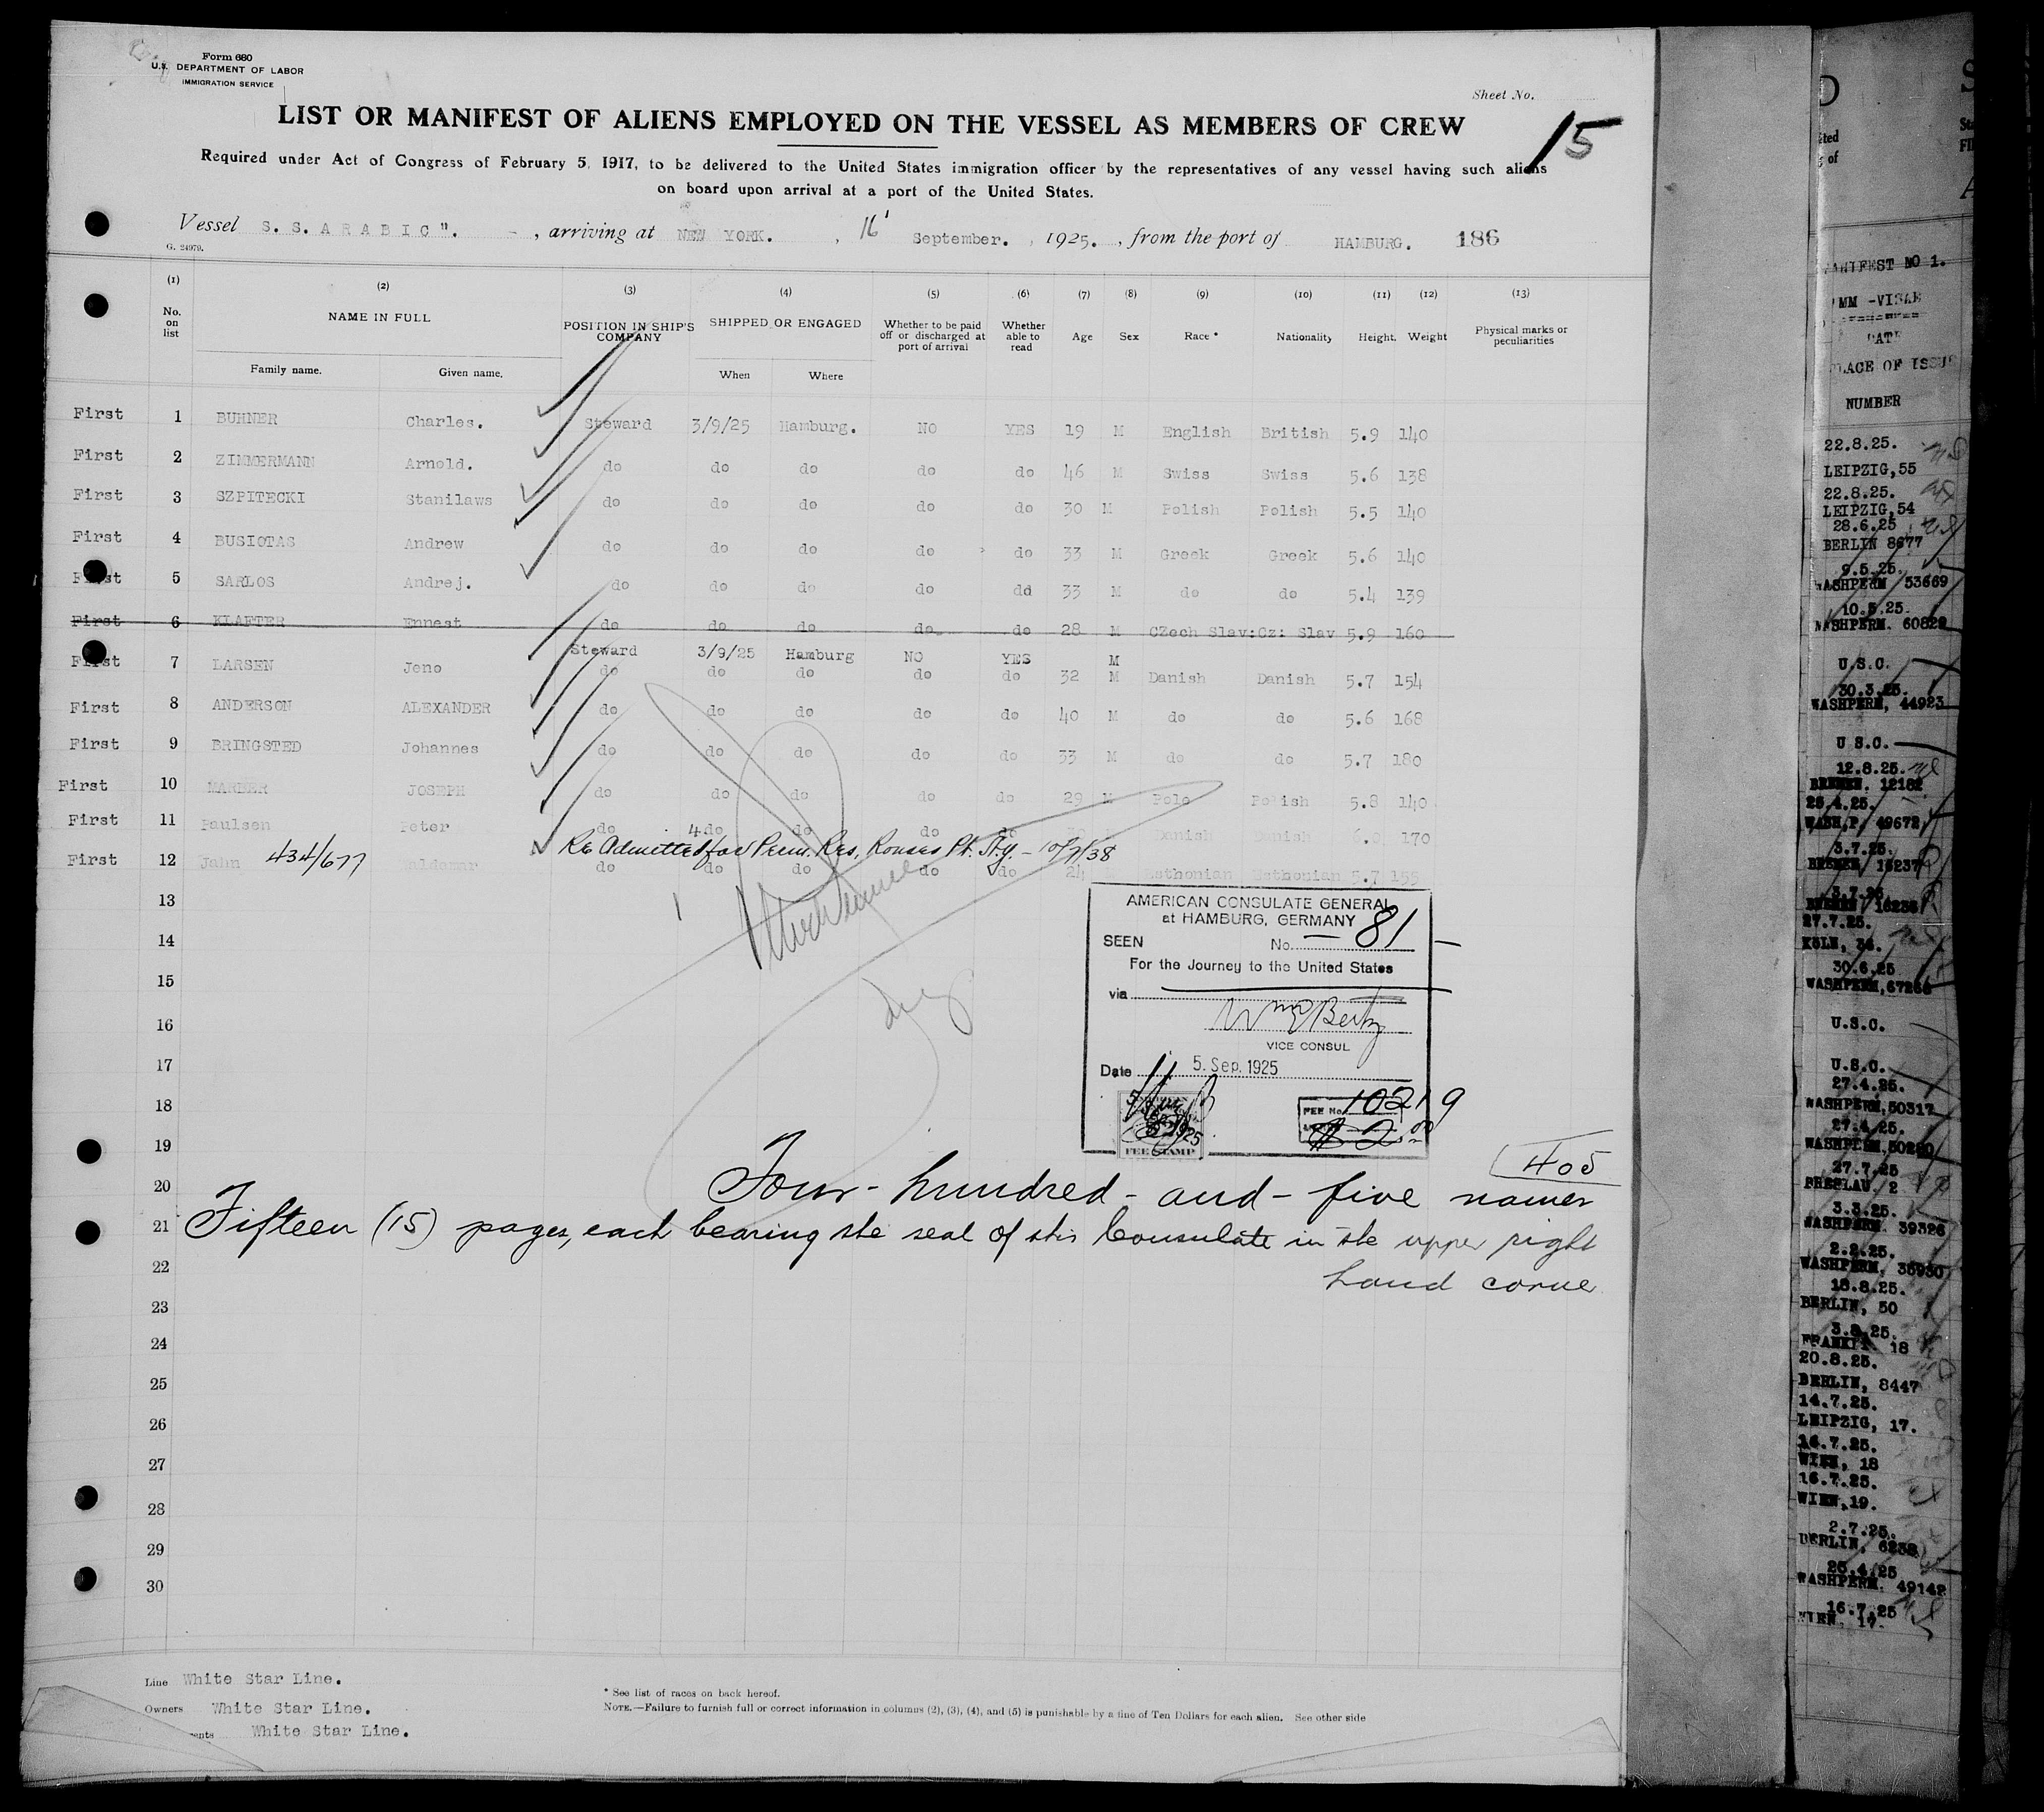 Form 680
U.S. DEPARTMENT OF LABOR
IMMIGRATION SERVICE
Sheet No. 15
LIST OR MANIFEST OF ALIENS EMPLOYED ON THE VESSEL AS MEMBERS OF CREW
Required under Act of Congress of February 5, 1917, to be delivered to the United States immigration officer by the representatives of any vessel having such aliens
on board upon arrival at a port of the United States.
Vessel S. S. ARABIC". , arriving at NEW YORK. , 16 September. , 1925. , from the port of HAMBURG. 186
G. 24979.
(1) (2) (3) (4) (5) (6) (7) (8) (9) (10) (11) (12) (13)
No. on list NAME IN FULL POSITION IN SHIP'S COMPANY SHIPPED OR ENGAGED Whether to be paid off or discharged at port of arrival Whether able to read Age Sex Race * Nationality Height. Weight Physical marks or peculiarities
Family name. Given name. When Where
First 1 BUHNER Charles. Steward 3/9/25 Hamburg. NO YES 19 M English British 5.9 140
First 2 ZIMMERMANN Arnold. do do do do do 46 M Swiss Swiss 5.6 138
First 3 SZPITECKI Stanilaws do do do do do 30 M Polish Polish 5.5 140
First 4 BUSIOTAS Andrew do do do do do 33 M Greek Greek 5.6 140
First 5 SARLOS Andrej. do do do do dd 33 M do do 5.4 139
First 6 KLAFTER Ennest do do do do do 28 M CZech Slav: Cz: Slav 5.9 160
Steward 3/9/25 Hamburg NO YES M
First 7 LARSEN Jeno do do do do do 32 M Danish Danish 5.7 154
First 8 ANDERSON ALEXANDER do do do do do 40 M do do 5.6 168
First 9 BRINGSTED Johannes do do do do do 33 M do do 5.7 180
First 10 MARBER JOSEPH do do do do do 29 M Pole Polish 5.8 140
First 11 Paulsen Peter do 4 do do do do Danish Danish 6.0 170
434/677 Re Admitted for Perm. Res. Rouses Pt. N.Y. - 10/7/38
First 12 Jahn Waldemar do do do do do 24 Esthonian Esthonian 5.7 155
13
14
15
16
17
18
19
20
21
22
23
24
25
26
27
28
29
30
AMERICAN CONSULATE GENERAL
at HAMBURG, GERMANY
SEEN No. 81
For the Journey to the United States
via
VICE CONSUL
Date 5. Sep. 1925
FEE No. 10219
$ 2.00
FEE STAMP
405
Four - hundred - and - five names
Fifteen (15) pages, each bearing the seal of this Consulate in the upper right
hand corner
Line White Star Line.
Owners White Star Line.
White Star Line.
* See list of races on back hereof.
NOTE.—Failure to furnish full or correct information in columns (2), (3), (4), and (5) is punishable by a fine of Ten Dollars for each alien. See other side
MANIFEST NO 1.
PLACE OF ISSUE
NUMBER
22.8.25.
LEIPZIG,55
22.8.25.
LEIPZIG,54
28.6.25
BERLIN 8677
9.5.25.
WASHPERM 53669
10.5.25.
WASHPERM. 60829
U.S.C.
30.3.25.
WASHPERM, 44923
U S.C.
12.8.25.
BREMEN. 12182
25.4.25.
WASH,P, 49672
3.7.25.
BREMEN 16237
3.7.25
27.7.25.
KOLN, 36.
30.6.25
WASHPERM,67266
U.S.C.
U.S.C.
27.4.25.
WASHPERM,50317
27.4.25.
27.7.25
BRESLAU. 2
3.3.25.
WASHPERM. 39326
2.2.25.
WASHPERM, 35930
18.8.25.
BERLIN, 50
3.8.25.
FRANKFT. 18
20.8.25.
BERLIN, 8447
14.7.25.
LEIPZIG, 17.
16.7.25.
WIEN, 18
16.7.25.
WIEN,19.
2.7.25.
BERLIN, 6238
25.4.25
WASHPERM. 49142
16.7.25
WIEN, 17.